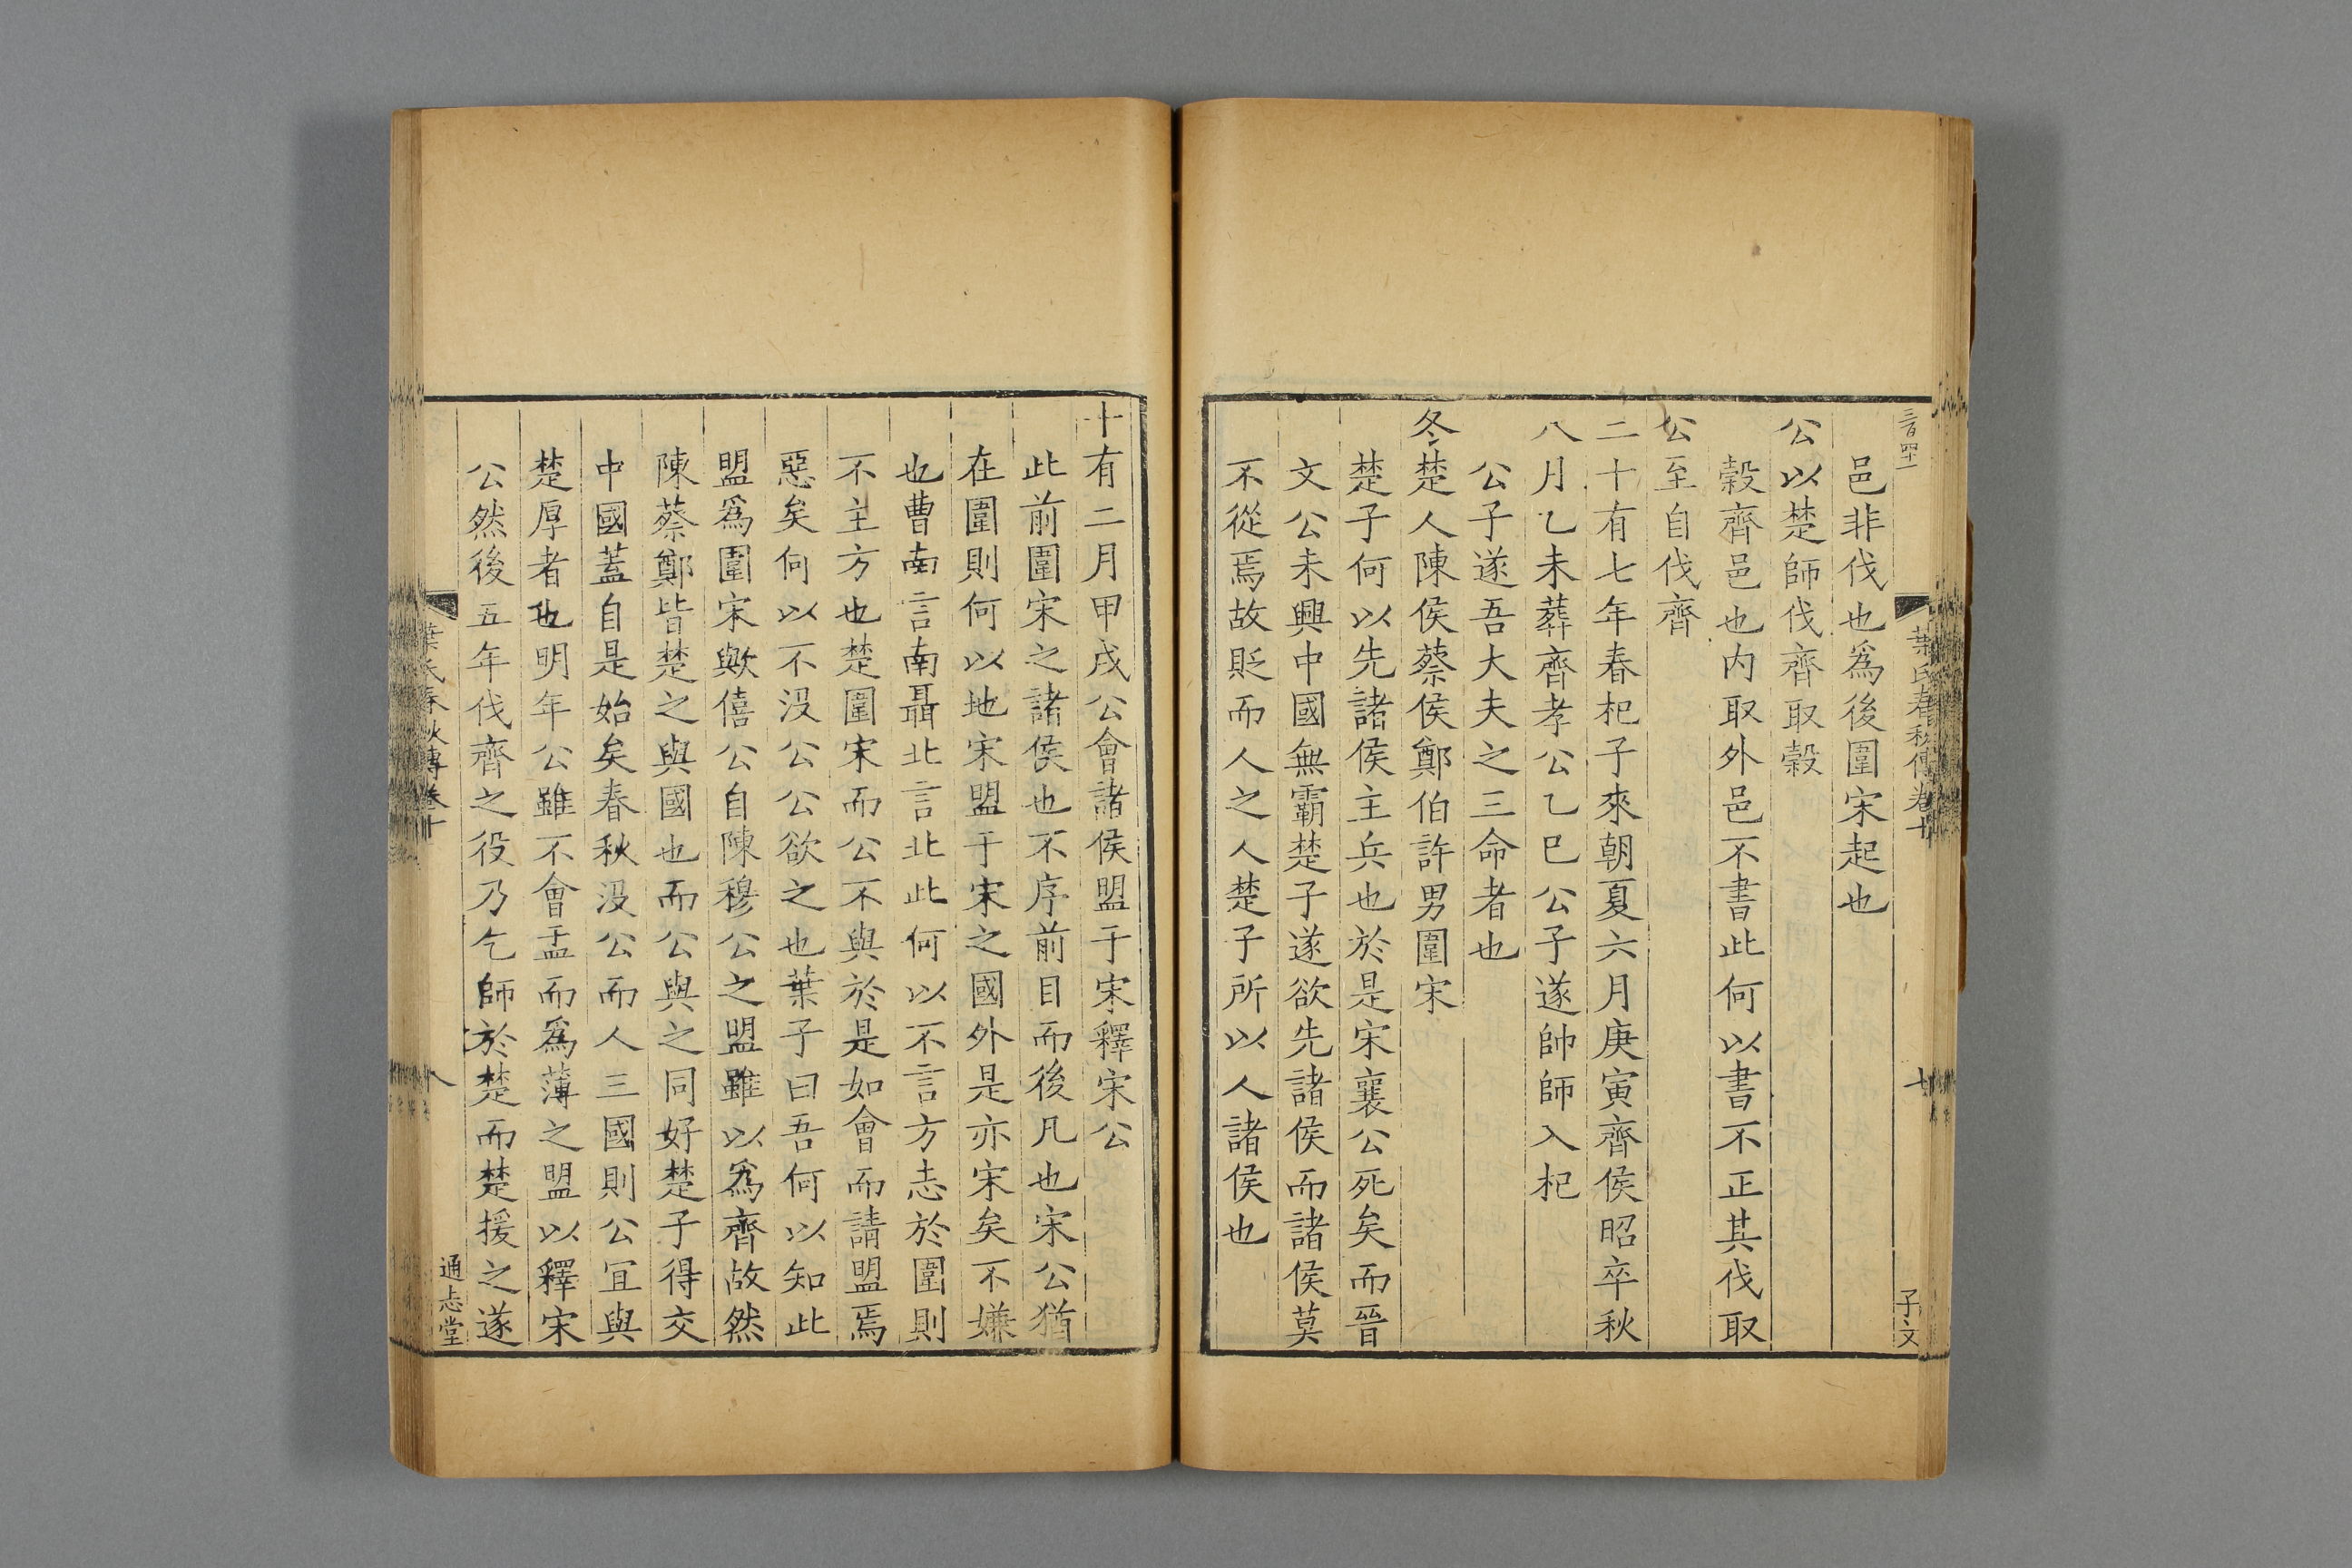 三百四十一
葉氏春秋傳卷十
十
子文
邑非伐也爲後圍宋起也
公以楚師伐齊取穀
穀齊邑也内取外邑不書此何以書不正其伐取
公至自伐齊
二十有七年春杞子來朝夏六月庚寅齊侯昭卒秋
八月乙未葬齊孝公乙巳公子遂帥師入杞
公子遂吾大夫之三命者也
冬楚人陳侯蔡侯鄭伯許男圍宋
楚子何以先諸侯主兵也於是宋襄公死矣而晉
文公未興中國無霸楚子遂欲先諸侯而諸侯莫
不從焉故貶而人之人楚子所以人諸侯也
十有二月甲戌公會諸侯盟于宋釋宋公
此前圍宋之諸侯也不序前目而後凡也宋公猶
在圍則何以地宋盟于宋之國外是亦宋矣不嫌
也曹南言南聶北言北此何以不言方志於圍則
不主方也楚圍宋而公不與於是如會而請盟焉
惡矣何以不沒公公欲之也葉子曰吾何以知此
盟爲圍宋歟僖公自陳穆公之盟雖以爲齊故然
陳蔡鄭皆楚之與國也而公與之同好楚子得交
中國蓋自是始矣春秋沒公而人三國則公宜與
楚厚者也明年公雖不會盂而爲薄之盟以釋宋
公然後五年伐齊之役乃乞師於楚而楚援之遂
葉氏春秋傳卷十
八
通志堂